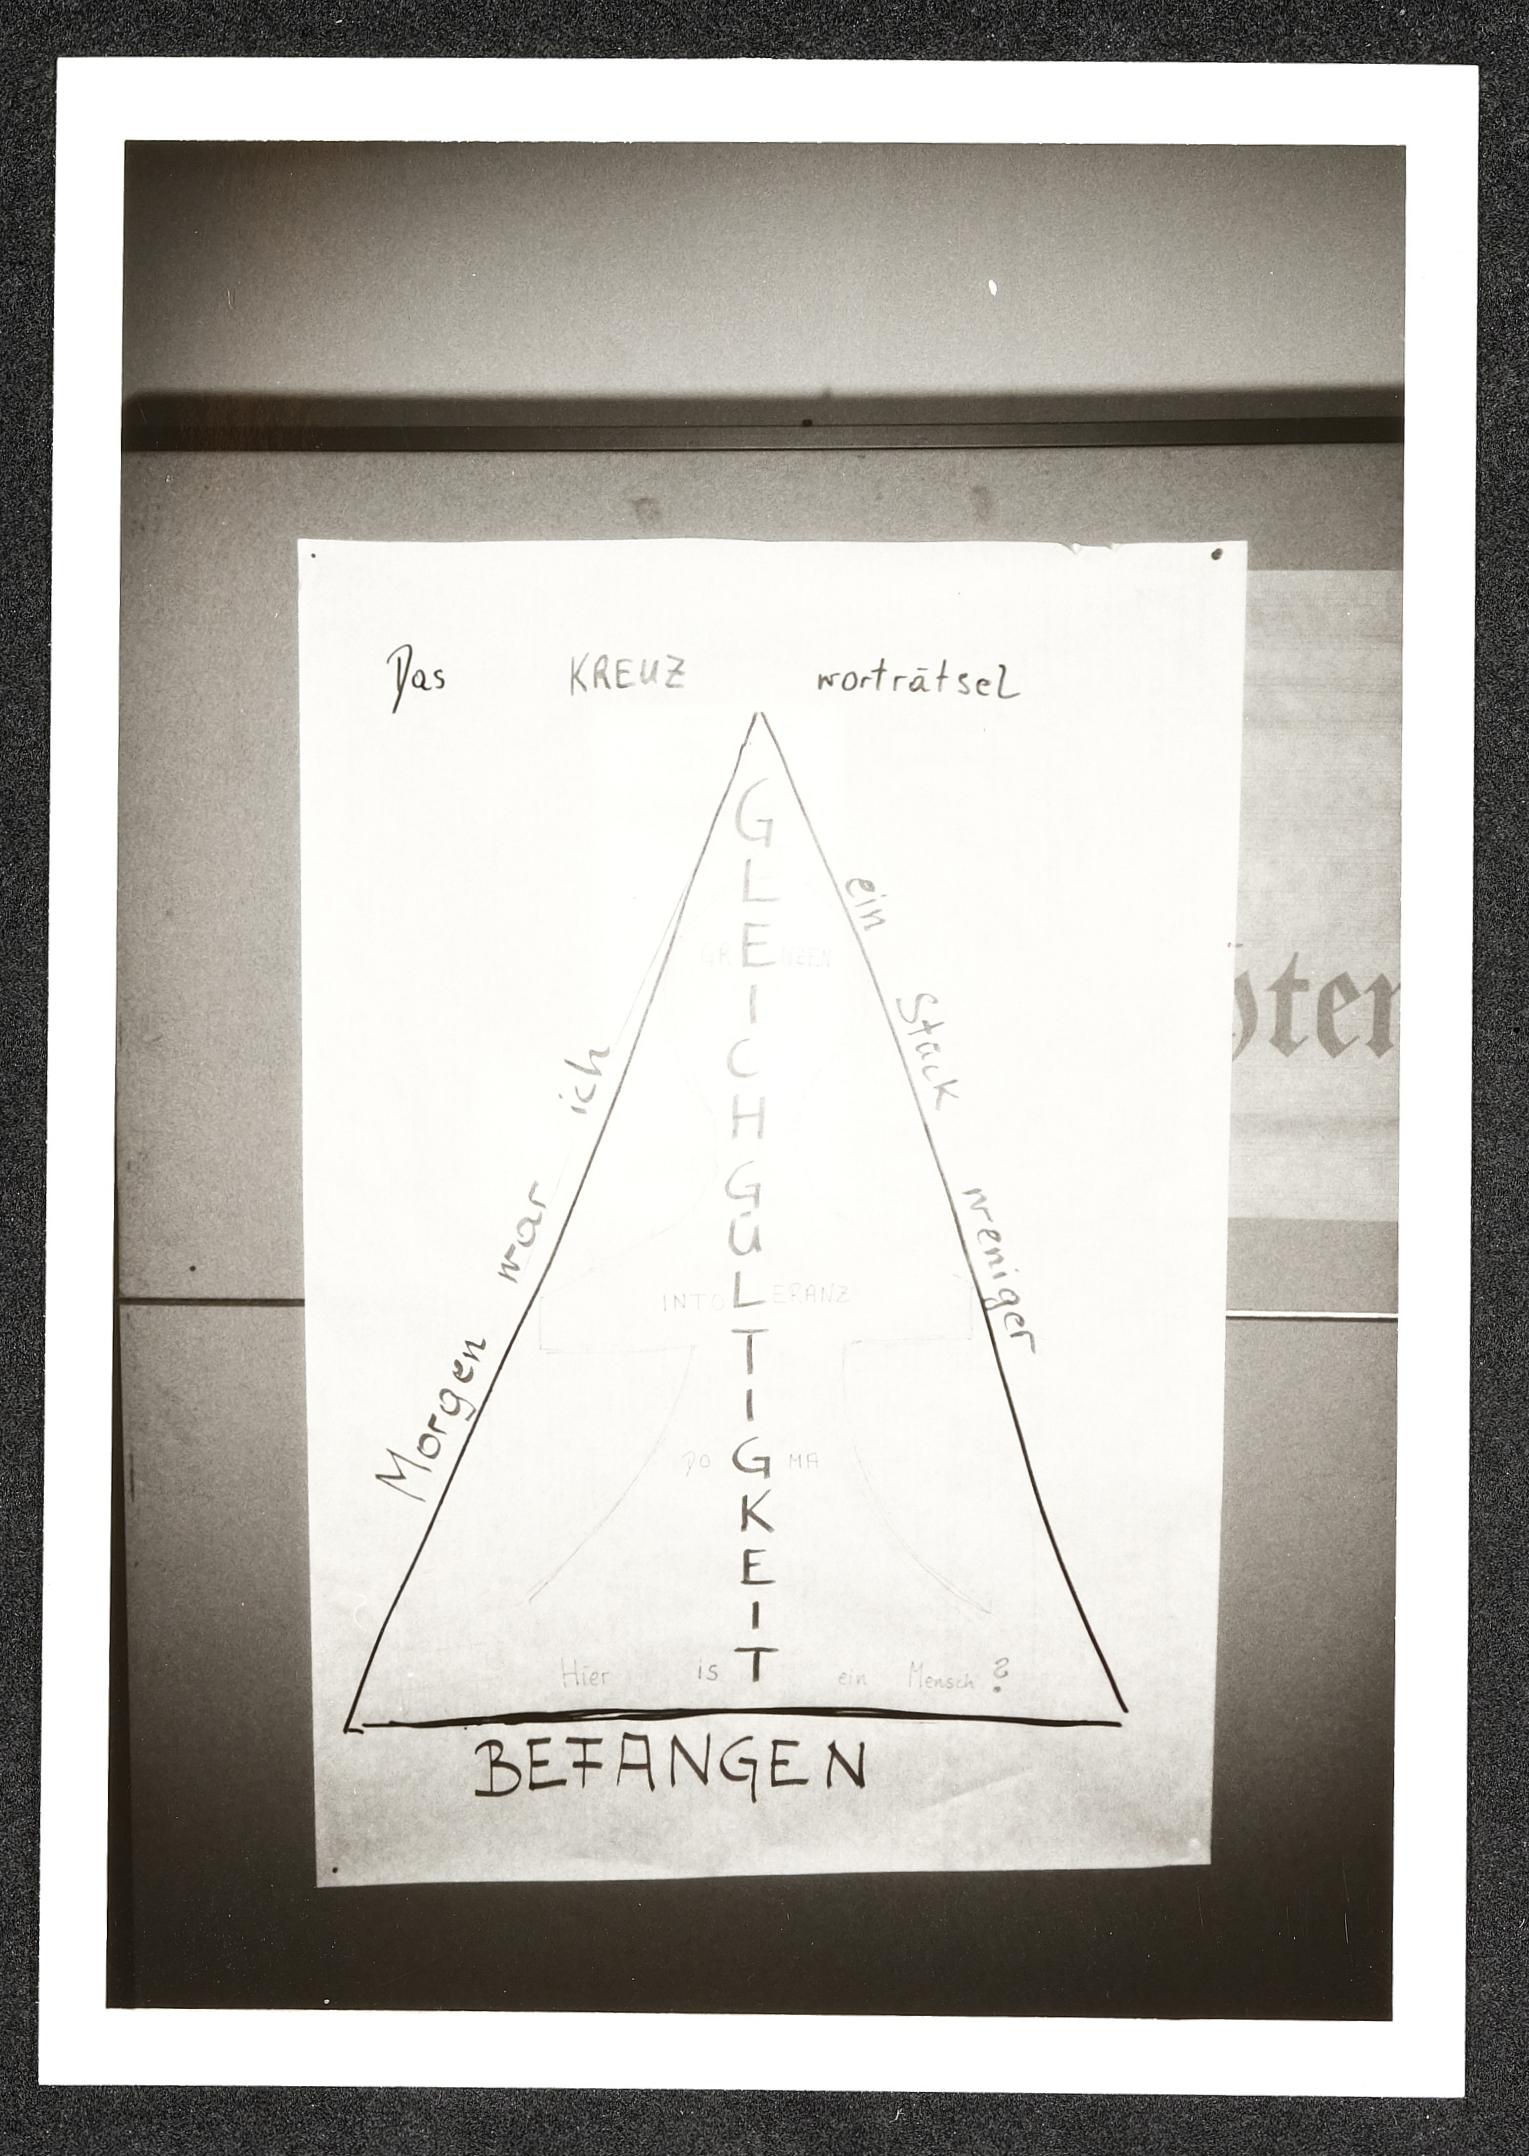 Das KREUZ worträtsel
Morgen war ich
ein Stück weniger
GLEICHGÜLTIGKEIT
GRENZEN
INTOLERANZ
DOGMA
Hier isT ein Mensch?
BEFANGEN
öten